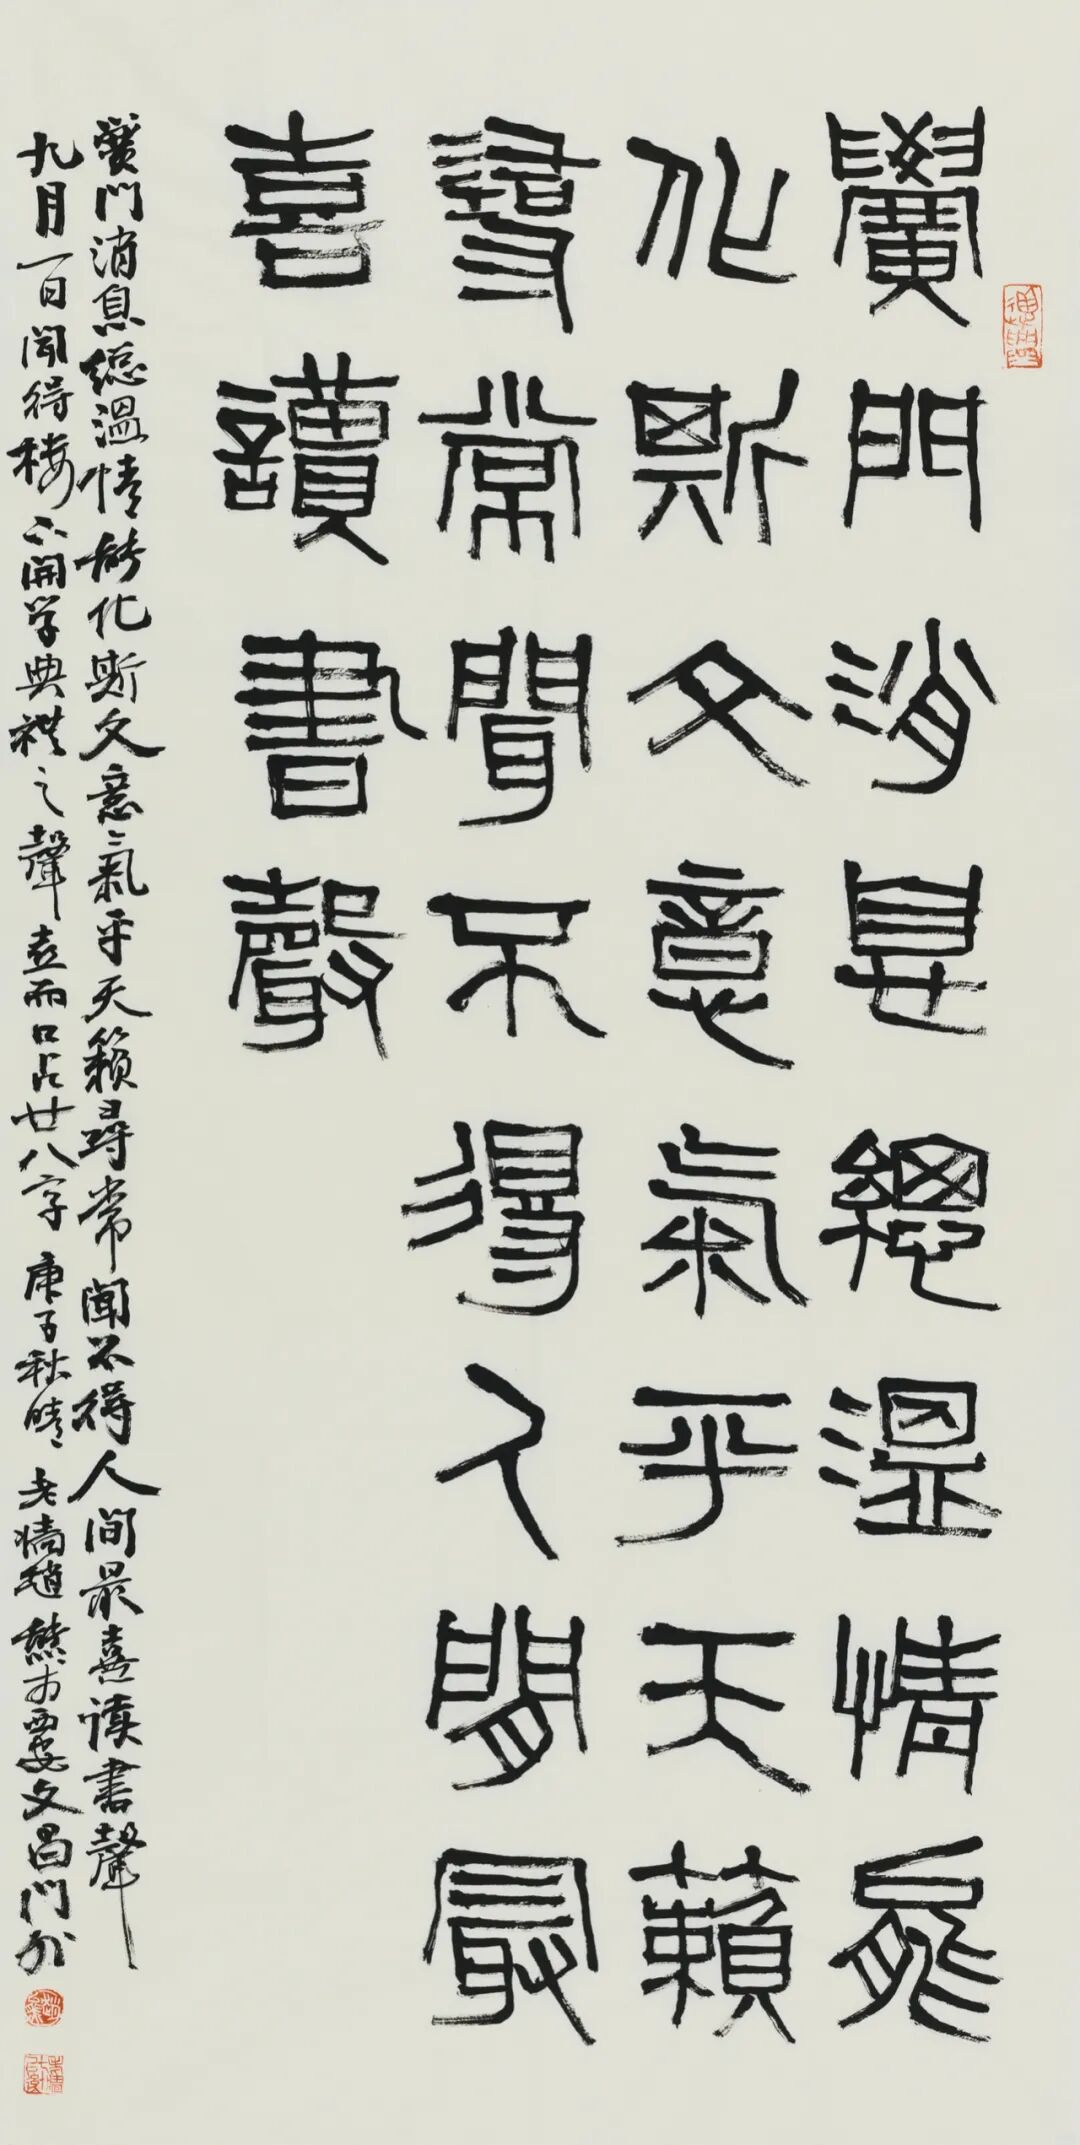 黌門消息總溫情能
化斯文意氣平天籟
尋常聞不得人間最
喜讀書聲
黌門消息總溫情能化斯文意氣平天籟尋常聞不得人间最喜读書聲
九月一日聞得楼下開学典禮之聲喜而口占廿八字庚子秋晴老墙趙熊于西安文昌門外